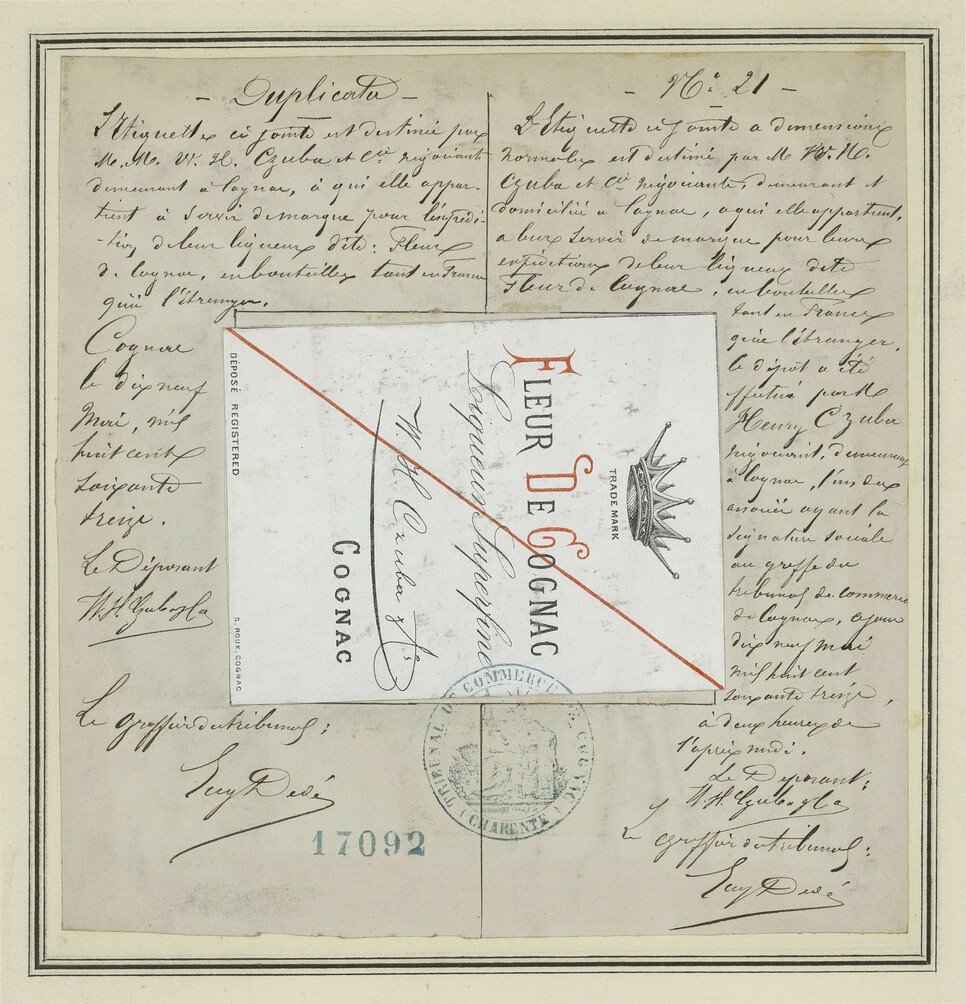 - Duplicata -
L'Etiquette ci jointe est destinée par
M.M. W. H. Czuba et Cie négociants
demeurant à Cognac, à qui elle appar-
tient à servir de marque pour l'expédi-
-tion de leur liqueur dite: Fleur
de Cognac, en bouteilles tant en France
qu'à l'étranger.
Cognac
le dix neuf
Mai, mil
huit cent
soixante
treize.
Le Déposant
W. H. Czuba & Ca
Le greffier du tribunal:
Eug Dédé
17092
- No. 21 -
L'Etiquette ci jointe a dimensions
normales est destiné par M W. H.
Czuba et Cie négociants, demeurant et
domiciliés a Cognac, a qui elle appartient,
a leur servir de marque pour leurs
expéditions de leur liqueur dite
Fleur de Cognac, en bouteilles
tant en France
qu'à l'étranger.
le dépôt a été
effectué par M
Henry Czuba
négociant, demeurant
à Cognac, l'un des
associés ayant la
signature sociale
au greffe du
tribunal de commerce
de Cognac, ce jour
dix neuf mai
mil huit cent
soixante treize,
à deux heures de
l'après midi.
Le Déposant:
W. H. Czuba & Ca
Le greffier du tribunal:
Eug Dédé
TRADE MARK
FLEUR DE COGNAC
Liqueur Superfine
W. H. Czuba & Cie
COGNAC
DÉPOSÉ REGISTERED
S. ROUX, COGNAC
TRIBUNAL DE COMMERCE DE COGNAC
(CHARENTE)